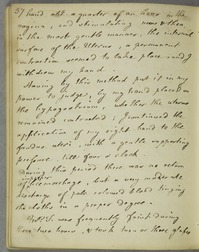 57 hand abt a quarter of an hour in the
vagina, and stimulating
in the most gentle manner, the internal
surface of the Uterus, a permanent
contraction seemed to take place, and I
withdrew my hand
Having by this method put it in my
power to judge, by my hand placed on
the hypogastrium, whether the uterus
remained contracted, I continued the
application of my right hand to the
fundus uteri, with a gentle supporting
pressure, till four o'clock.
During this period there was no return
of haemorrhage, but a very moderate
discharge of pale coloured blood tinging
the cloths in a proper degree.
was frequently faint during
these two hours, & took two or three glasses